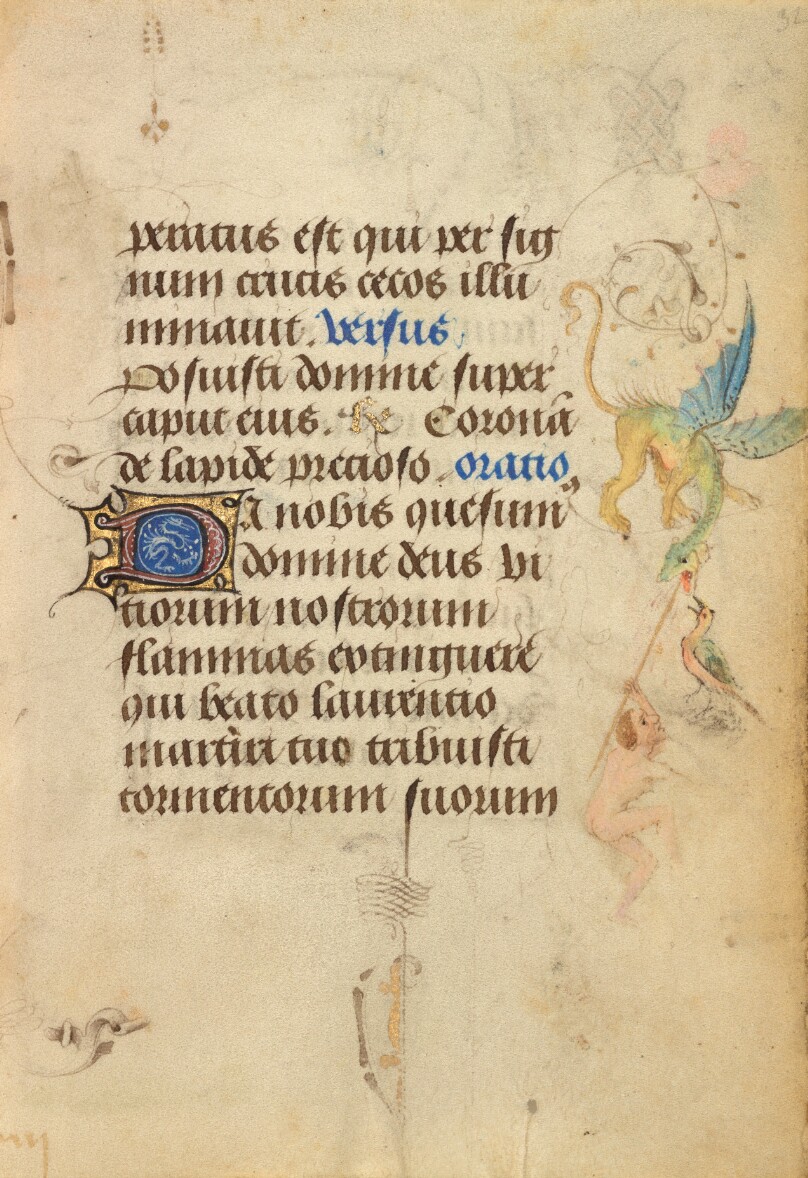 peratus est qui per sig
num crucis cecos illu
minauit. versus
Posuisti domine super
caput eius. R Coronā
de lapide precioso. oratio
Da nobis quesum9
domine deus vi
tiorum nostrorum
flammas extinguere
qui beato laurentio
martiri tuo tribuisti
tormentorum suorum